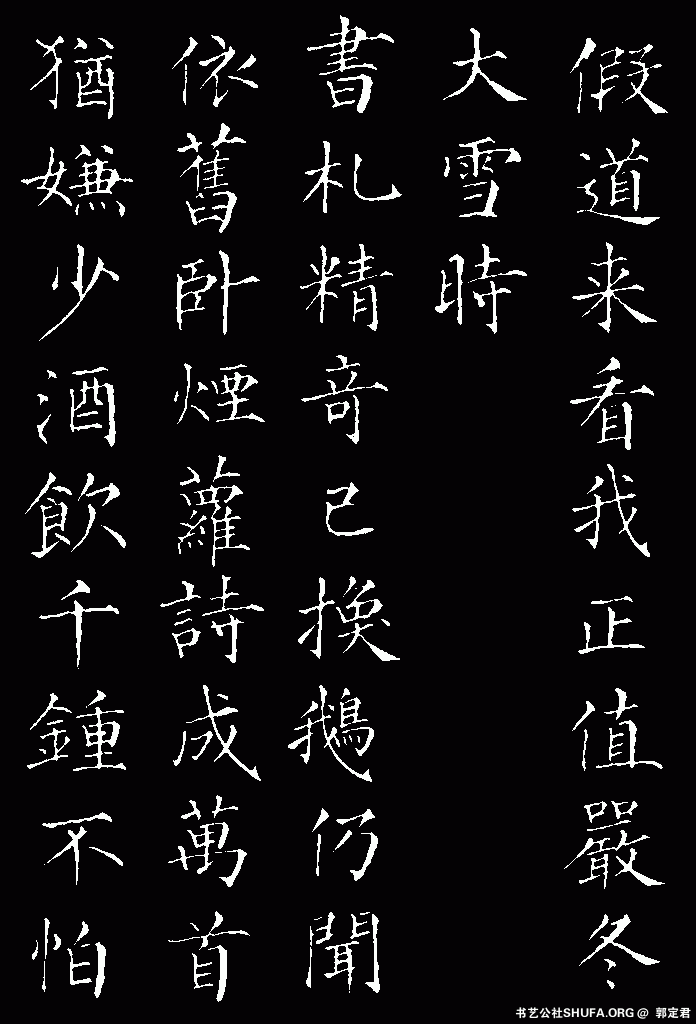 假道来看我正值嚴冬
大雪時
書札精竒已換鵝仍聞
依舊卧煙蘿詩成萬首
猶嫌少酒飲千鍾不怕
书艺公社SHUFA.ORG @ 郭定君